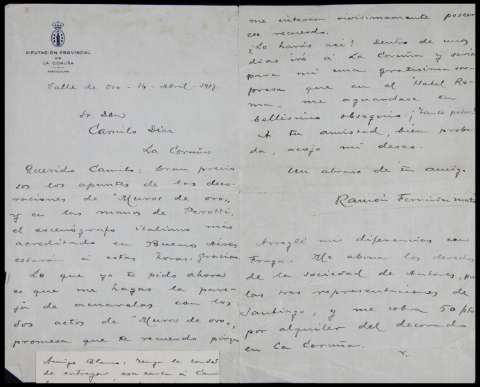 DIPUTACIÓN PROVINCIAL
DE
LA CORUÑA
PARTICULAR
Valle de oro - 14 - Abril - 1927.
Sr. Don
Camilo Díaz
La Coruña
Querido Camilo: Eran precio
sos los apuntes de las deco
raciones de "Muros de oro",
y en las manos de Parotti,
el escenógrafo italiano más
acreditado en Buenos Aires
estarán á estas horas. Gracias
Lo que yo te pido ahora
es que me hagas la pare
ja de acuarelas con los
dos actos de "Muros de oro",
promesa que te recuerdo porque
Amigo Blanco: Tengo
de entregar esa carta á Cami
me interesa vivísimamente poseer
ese recuerdo.
¿Lo harás así? Dentro de unos
días iré á La Coruña y sería
para mí una gratísima sor
presa que en el Hotel Ro
ma, me aguardase un
bellísimo obsequio.
A tu amistad, bien proba
da, acojo mi deseo.
Un abrazo de tu amigo
Ramón Fernández Mato
Arreglé mis diferencias con
Fraga. Me abona los derechos
de la sociedad de Autores, por
las tres representaciones de
Santiago, y me cobra 50 pts
por alquiler del decorado
en La Coruña.